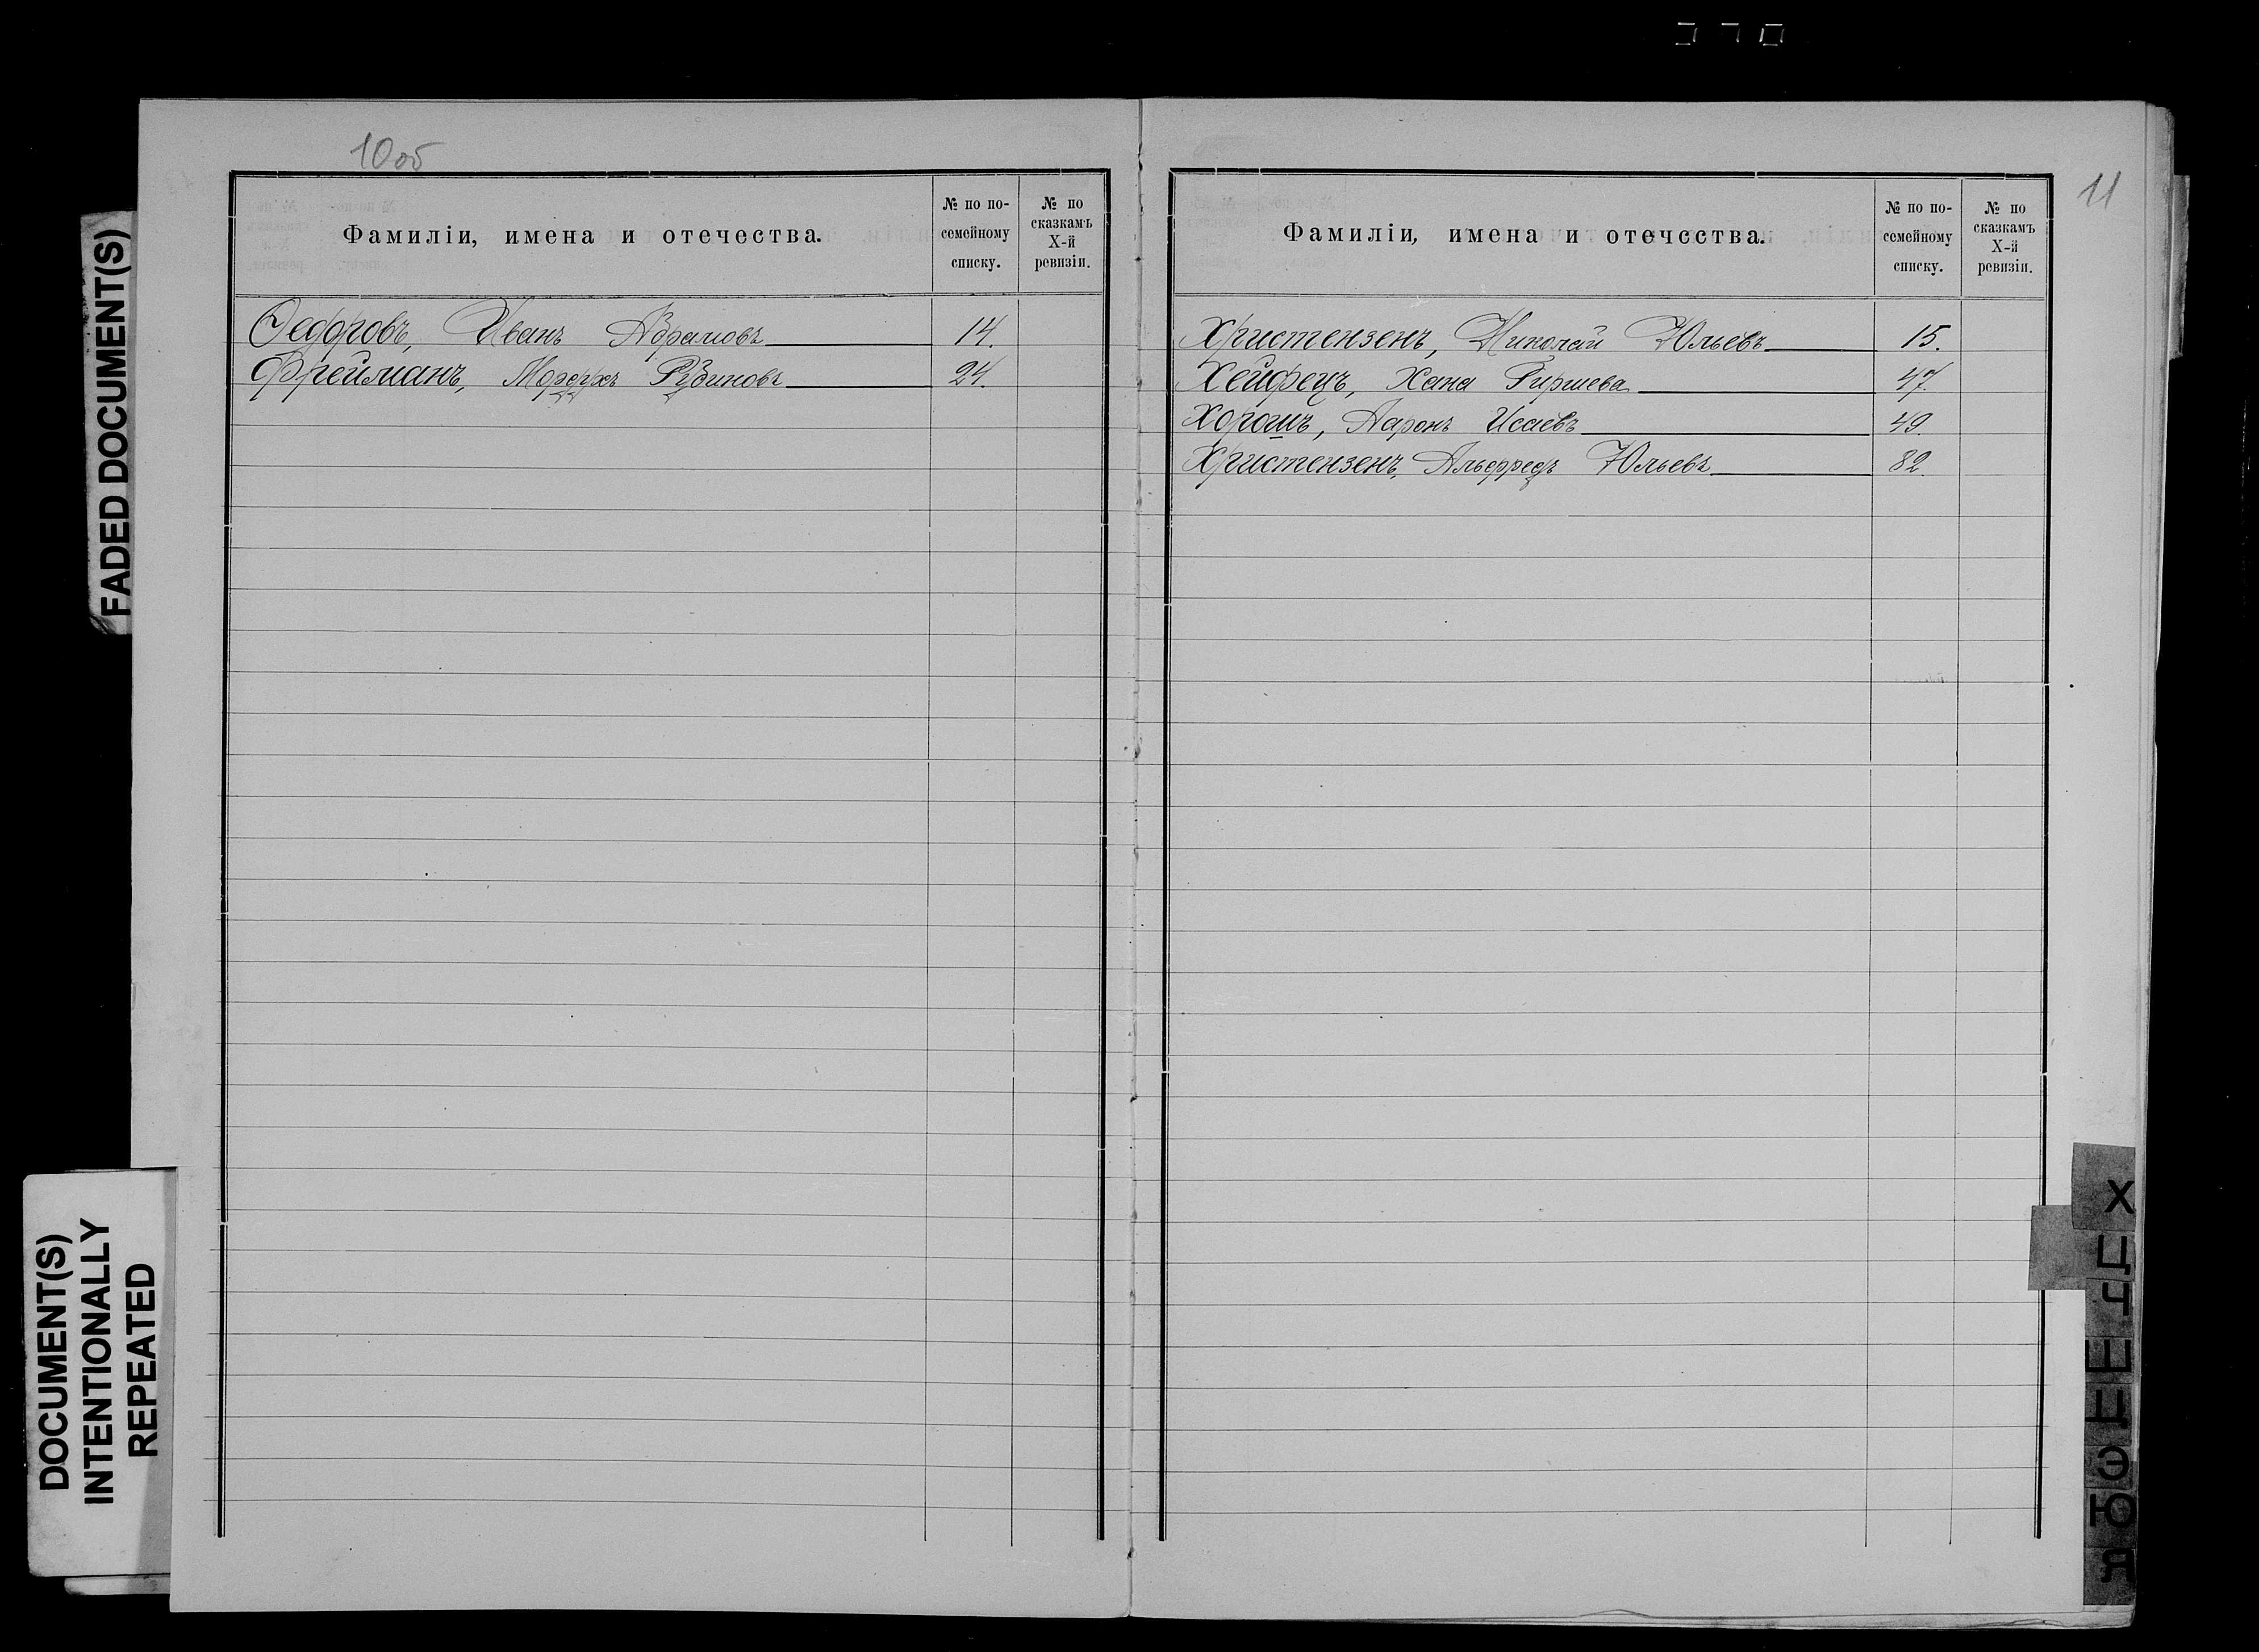 10об
Фамиліи, имена и отечества.
№ по по-
семейному
списку.
№ по
сказкамъ
X-й
ревизіи.
Федоровъ, Иванъ Абрамовъ 14.
Фрейманъ, Мордухъ Рубиновъ 24.
11
Фамиліи, имена и отечества.
№ по по-
семейному
списку.
№ по
сказкамъ
X-й
ревизіи.
Христензенъ, Николай Юльевъ 15.
Хейфецъ, Хана Гиршева 47.
Хорошъ, Ааронъ Исаевъ 49.
Христензенъ, Альфредъ Юльевъ 82.
FADED DOCUMENT(S)
DOCUMENT(S)
INTENTIONALLY
REPEATED
Х
Ц
Ч
Ш
Щ
Э
Ю
Я